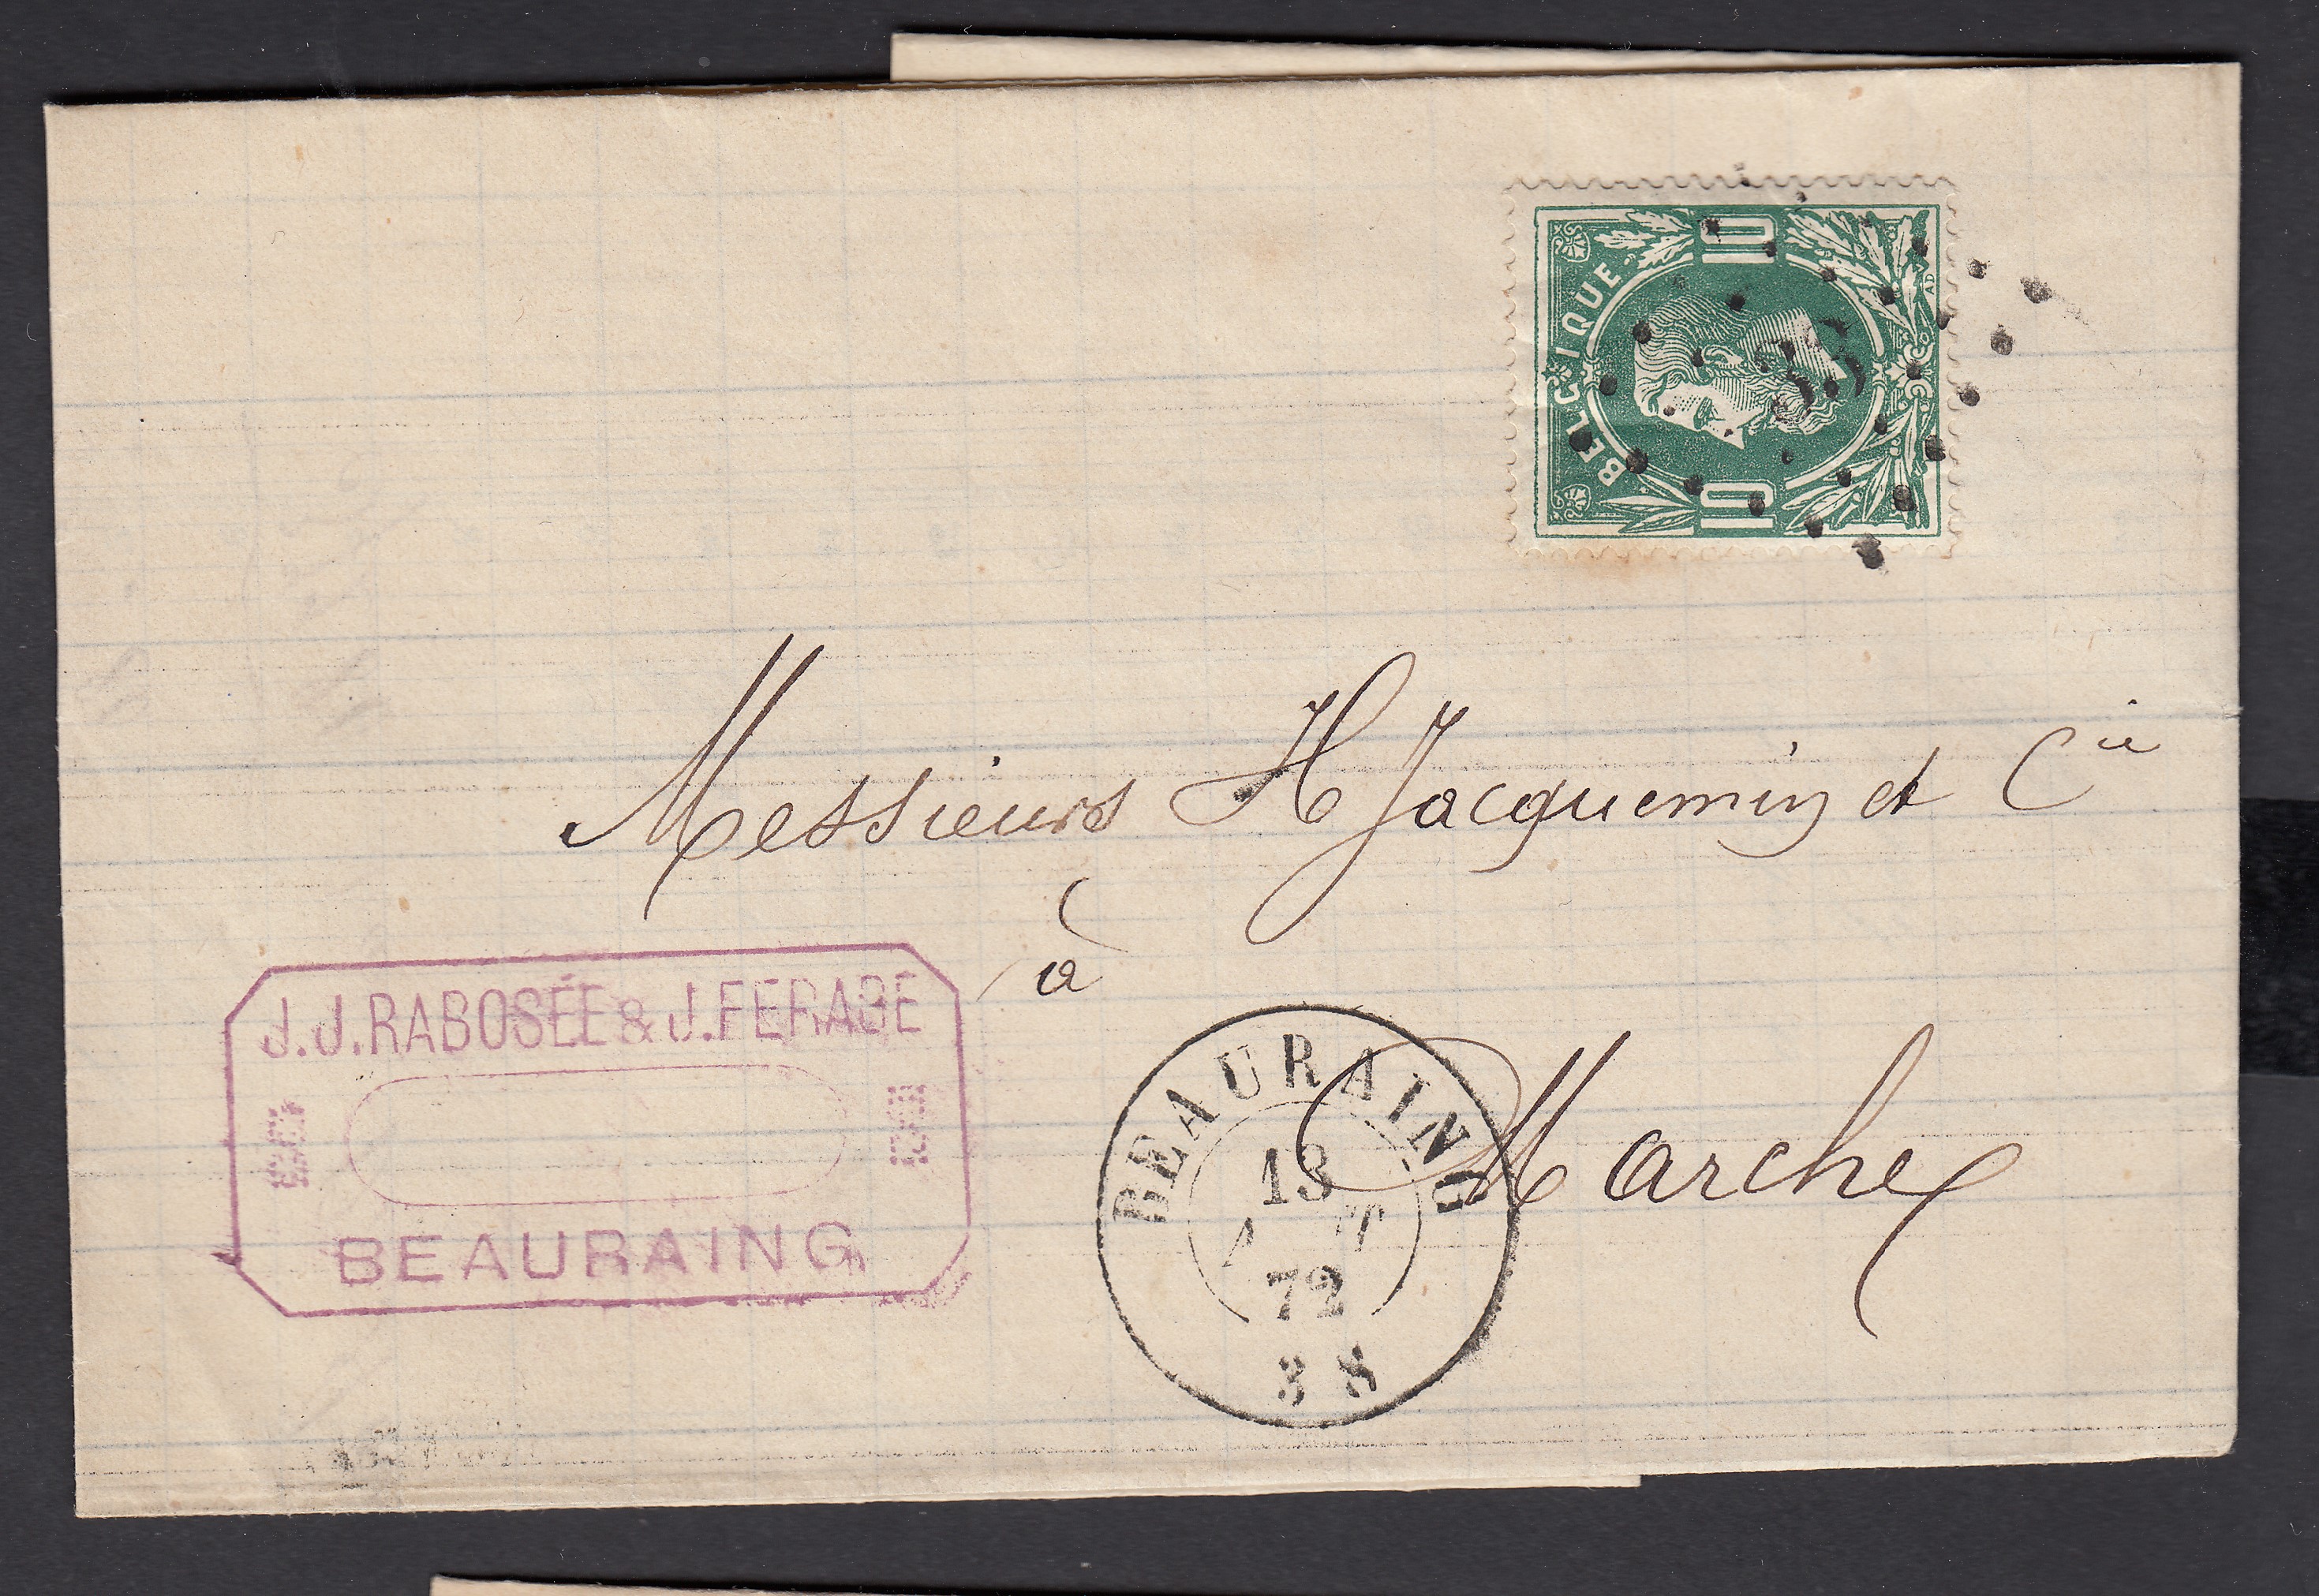 BELGIQUE
10 10
Messieurs H Jacquemin et Cie
à
Marche
J.J. RABOSÉE & J. FERAGE
BEAURAING
BEAURAING
13
72
3 S